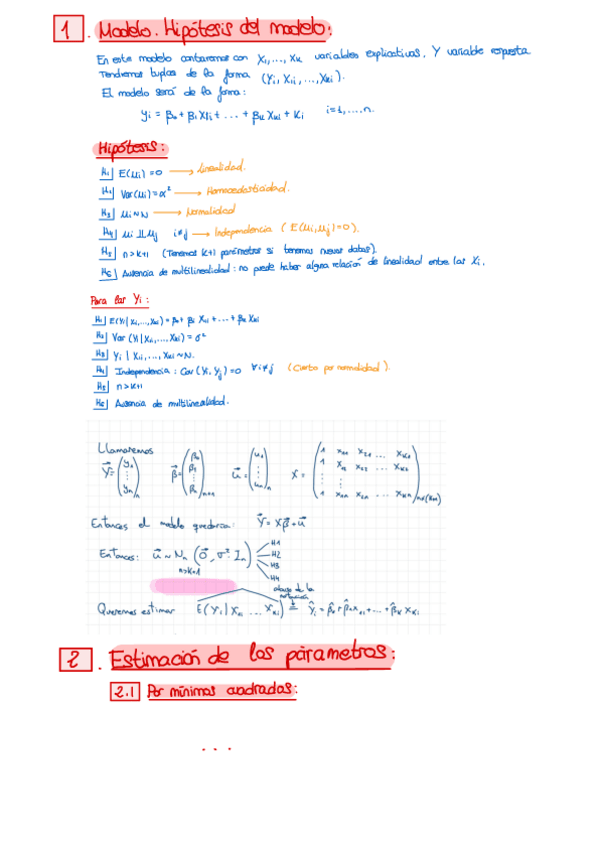 1. Modelo. Hipótesis del modelo:
En este modelo contaremos con X₁,..., Xₖ variables explicativas, Y variable respuesta
Tendremos tuplas de la forma (Yᵢ, X₁ᵢ, ..., Xₖᵢ).
El modelo será de la forma:
yᵢ = β₀ + β₁X₁ᵢ + ... + βₖXₖᵢ + μᵢ i=1,...,n.
Hipótesis:
H₁| E(μᵢ) = 0 → Linealidad.
H₂| Var(μᵢ) = σ² → Homocedasticidad.
H₃| μᵢ ~ N → Normalidad
H₄| μᵢ ⊥⊥ μⱼ i≠j → Independencia ( E(μᵢ, μⱼ)=0 ).
H₅| n > k+1 (Tenemos k+1 parámetros si tenemos nuevos datos).
H₆| Ausencia de multilinealidad: no puede haber alguna relación de linealidad entre las Xᵢ.
Para las Yᵢ:
H₁| E(Yᵢ | X₁ᵢ,...,Xₖᵢ) = β₀ + β₁ X₁ᵢ + ... + βₖ Xₖᵢ
H₂| Var (Yᵢ | X₁ᵢ, ..., Xₖᵢ) = σ²
H₃| Yᵢ | X₁ᵢ, ..., Xₖᵢ ~ N.
H₄| Independencia: Cov (Yᵢ, Yⱼ) = 0 ∀ i≠j (Cierto por normalidad).
H₅| n > k+1
H₆| Ausencia de multilinealidad.
Llamaremos
Y⃗ = (y₁ ⋮ yₙ)ₙ β⃗ = (β₀ β₁ ⋮ βₖ) u⃗ = (u₁ ⋮ uₙ)ₙ X = (1 x₁₁ x₂₁ ... xₖ₁ 1 x₁₂ x₂₂ ... xₖ₂ ⋮ ⋮ 1 x₁ₙ x₂ₙ ... xₖₙ)ₙₓ₍ₖ₊₁₎
Entonces el modelo quedaría: Y⃗ = Xβ⃗ + u⃗
Entonces: u⃗ ~ Nₙ (0⃗, σ² · Iₙ) H1 H2 H3 H4
n>k+1
abuso de la notación
Queremos estimar E(Yᵢ | X₁ᵢ ... Xₖᵢ) = ŷᵢ = β̂₀ + β̂₁x₁ᵢ + ... + β̂ₖ xₖᵢ
2. Estimación de los parámetros:
2.1 Por mínimos cuadrados:
...